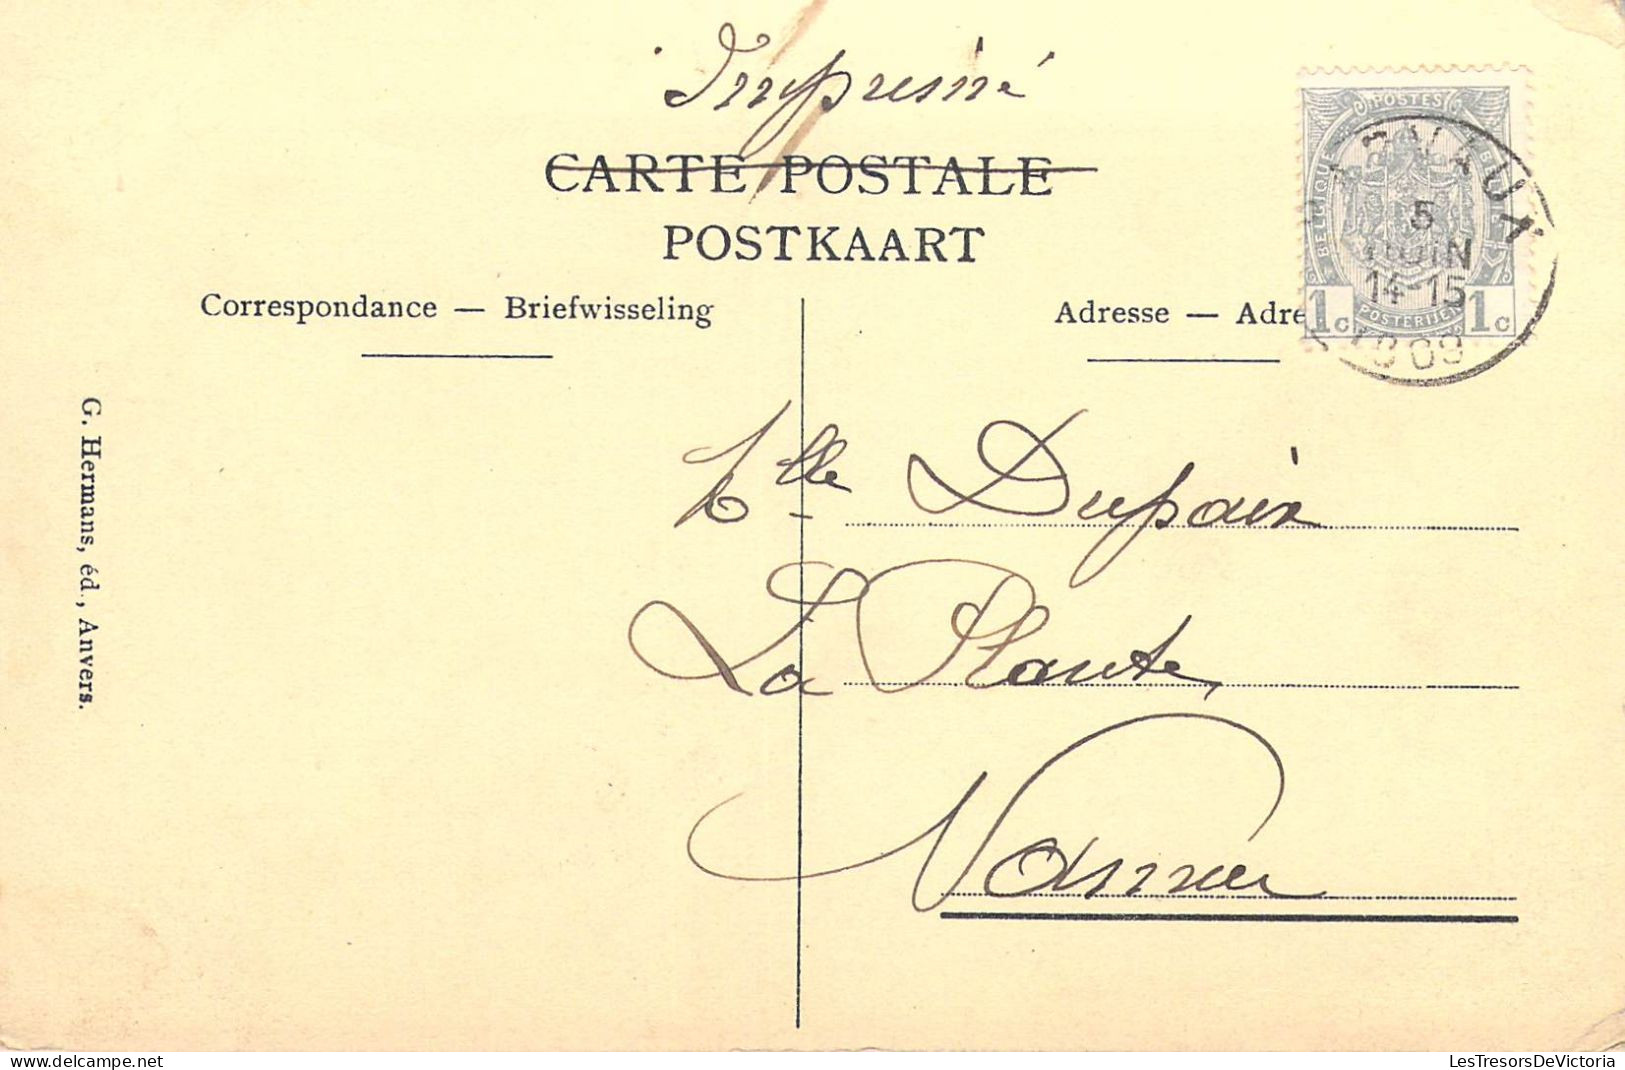 Imprimé
CARTE POSTALE
POSTKAART
Correspondance — Briefwisseling
Adresse — Adre
POSTES
BELGIQUE
5
JUIN
14-15
1909
1c
POSTERIJEN
1c
G. Hermans, éd., Anvers.
Mlle Dupaix
La Plante
Namur
LesTresorsDeVictoria
delcampe.net